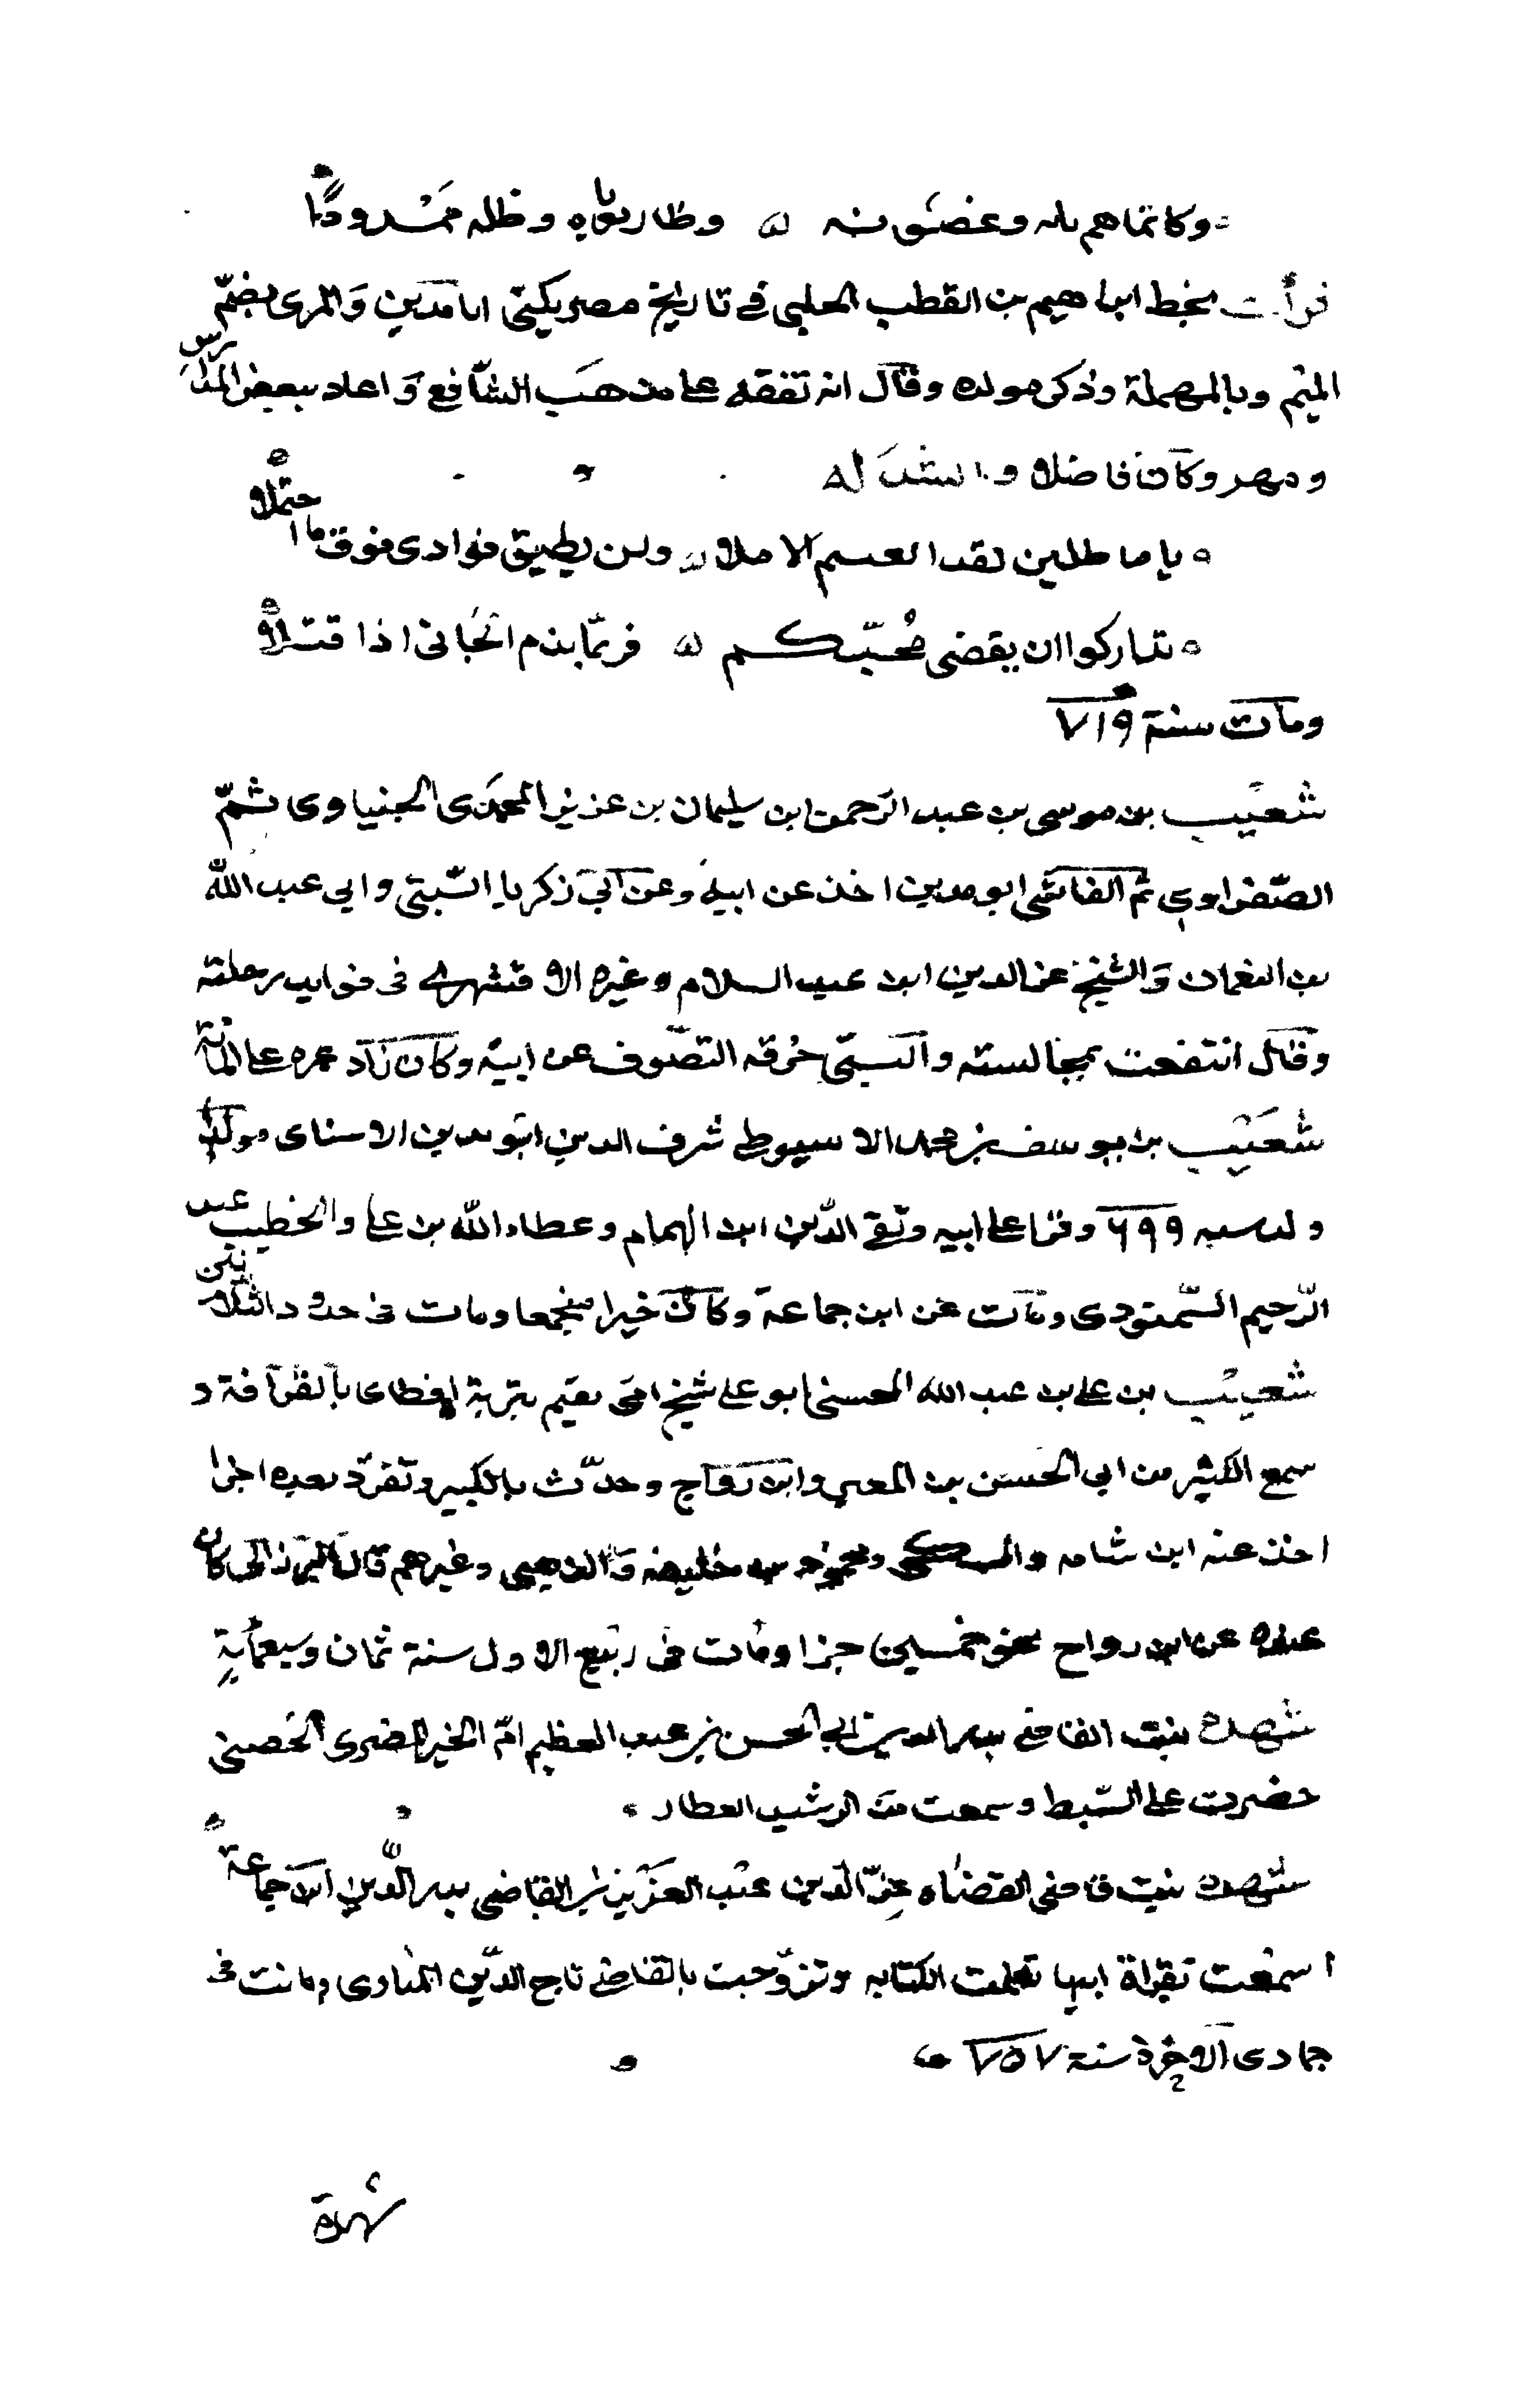 وكانما هم بله وغضو نه ۵ وظا ريو باه وظله ممْدودًا
قرأت بخط ابراهيم بن القطب الحلبى في تاريخ مصر يكنّى ابا مدين والمرى بضمّ
الميم وبالمهملة وذكر مولده وقال انه تفقه على مذهب الشافعى واعاد ببعض المدارس
ومهر وكان فاضلا وانشد له
ياما طلين لقد العسم الاملا ولن يطيق فوادى فوق ما احتملا
تداركوا ان يقضى محبّكم ۵ فربّما يندم الجانى اذا قتلا
ومات سنة ٧١٩
شعيب بن موسى بن عبد الرحمن ابن سليمان بن عزيز المحمدى الجنياوى ثمّ
الصّفراوي ثم الفاسى ابو مدين اخذ عن ابيه وعن ابى زكريا السّبتى وابي عبد الله
بن النعمان والشيخ عز الدين ابن عبد السلام وغيره الاقتشهرى فى فوايد رحلته
وقال انتفعت بمجالسته والبسنى خرقه التصّوف عن ابيه وكان زاد عمره على المائة
شعيب بن يوسف بن محمد الاسيوطى شرف الدين ابو مدين الاسناى مولدا
ولد سنه ٦٩٩ وقرا على ابيه وتقى الدّين ابن الهمام وعطاء الله بن على والخطيب عبد
الرّحيم السّمنودى وناب عن ابن جماعة وكان خيرا منجمعا ومات فى حدود الثلاثين
شعيب بن على بن عبد الله المحسنى ابو على شيخ امى مقيم بتربة اقطاى بالقرافة و
سمع الكثير من ابي الحسن بن المعير وابن رواج وحدّث بالكبير وتفرّد بعده اجزا
اخذ عنه ابن شامه والسبكى ومحمود بن خليفه والذهبى وغيرهم قال البرزالى كان
عنده عن ابن رواح نحو خمسين جزا ومات فى ربيع الاول سنة ثمان وسبعماية
شهده بنت القاضى بدر الدين ابى الحسن بن عبد العظيم امّ الخير المصرى الحصينى
حضرت على السّبط وسمعت من الرشيد العطار
شهده بنت قاضى القضاه عزّ الدين عبد العزيز بن القاضى بدر الدّين ابن جماعة
اسمعت بقراة ابيها تعلمت الكتابه وتزوّجت بالقاضى تاج الدّين المناوى وماتت فى
جمادى الاخرة سنة ٧٥٧
شهدة